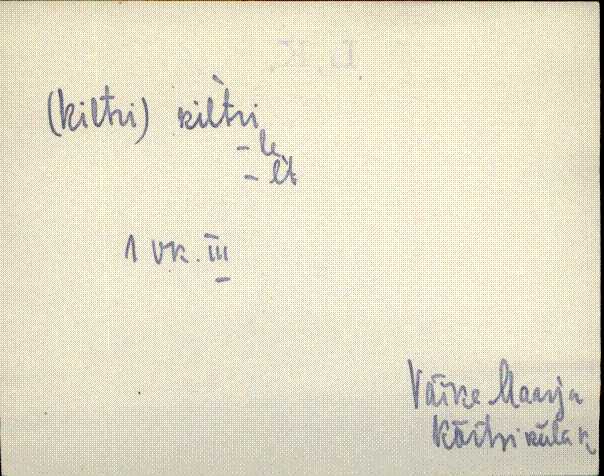 (kiltri) kìltri
- le
- lt
1 vk. III
Väike Maarja
Kõltri küla k